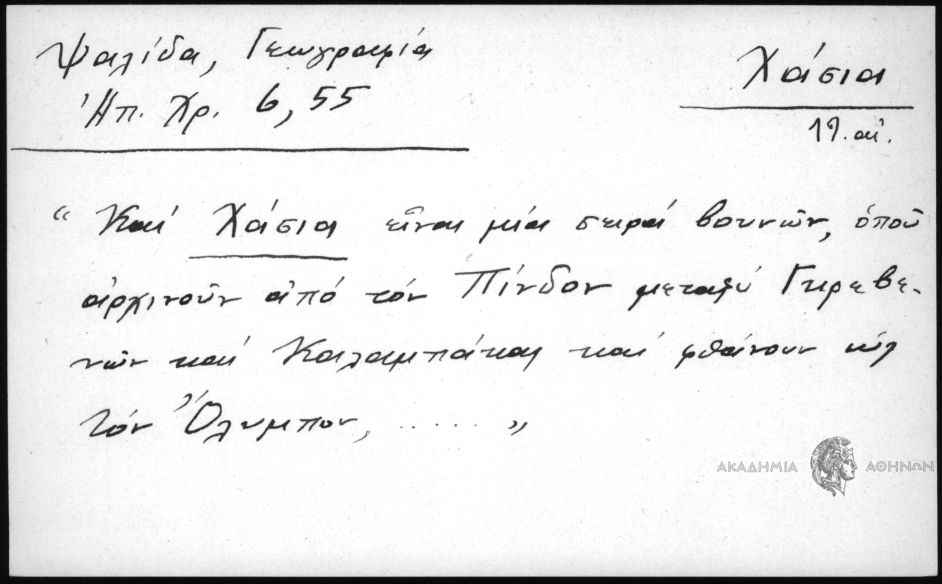 Ψαλίδα, Γεωγραφία
Ἠπ. Χρ. 6, 55
Χάσια
19. αἰ.
“ Καί Χάσια εἶναι μία σειρά βουνῶν, ὁποῦ
ἀρχινοῦν ἀπό τόν Πίνδον μεταξύ Γκρεβε-
νῶν καί Καλαμπάκας καί φθάνουν ὡς
τόν Ὄλυμπον, ...... ”
ΑΚΑΔΗΜΙΑ ΑΘΗΝΩΝ